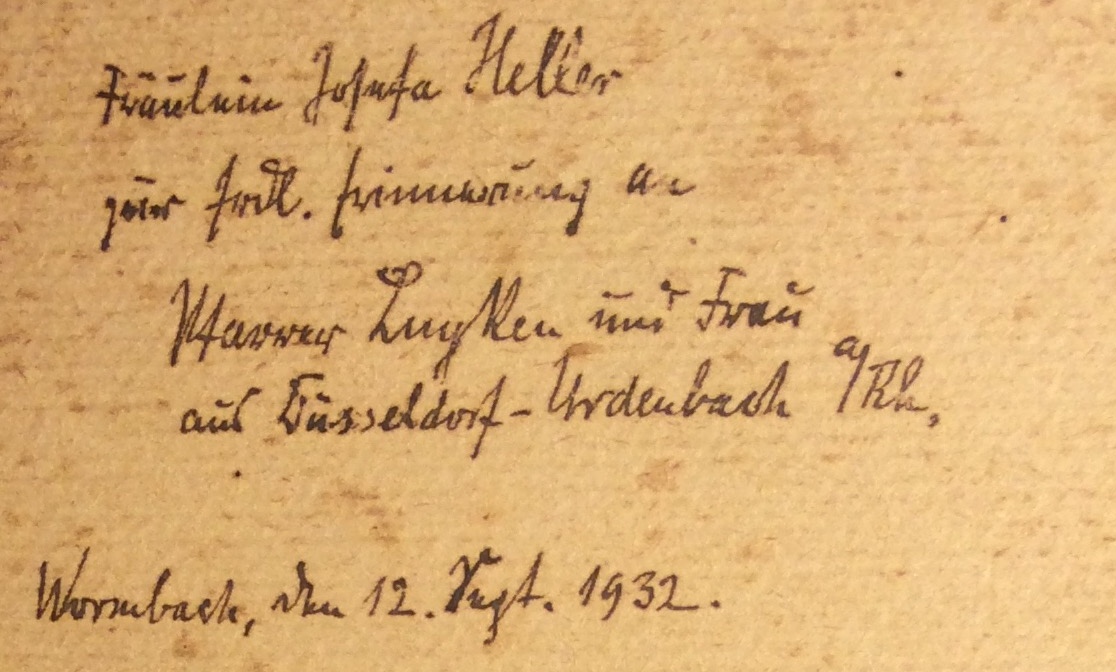 Fräulein Josefa Heller
zur frdl. Erinnerung an
Pfarrer und Frau
aus Düsseldorf-Urdenbach a/Rh.
den 12. Sept. 1932.